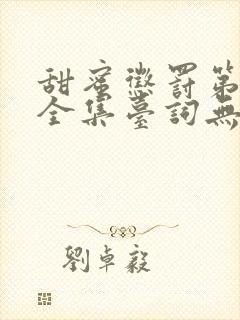 甜蜜懲罰第
全集臺詞無
劉卓毅